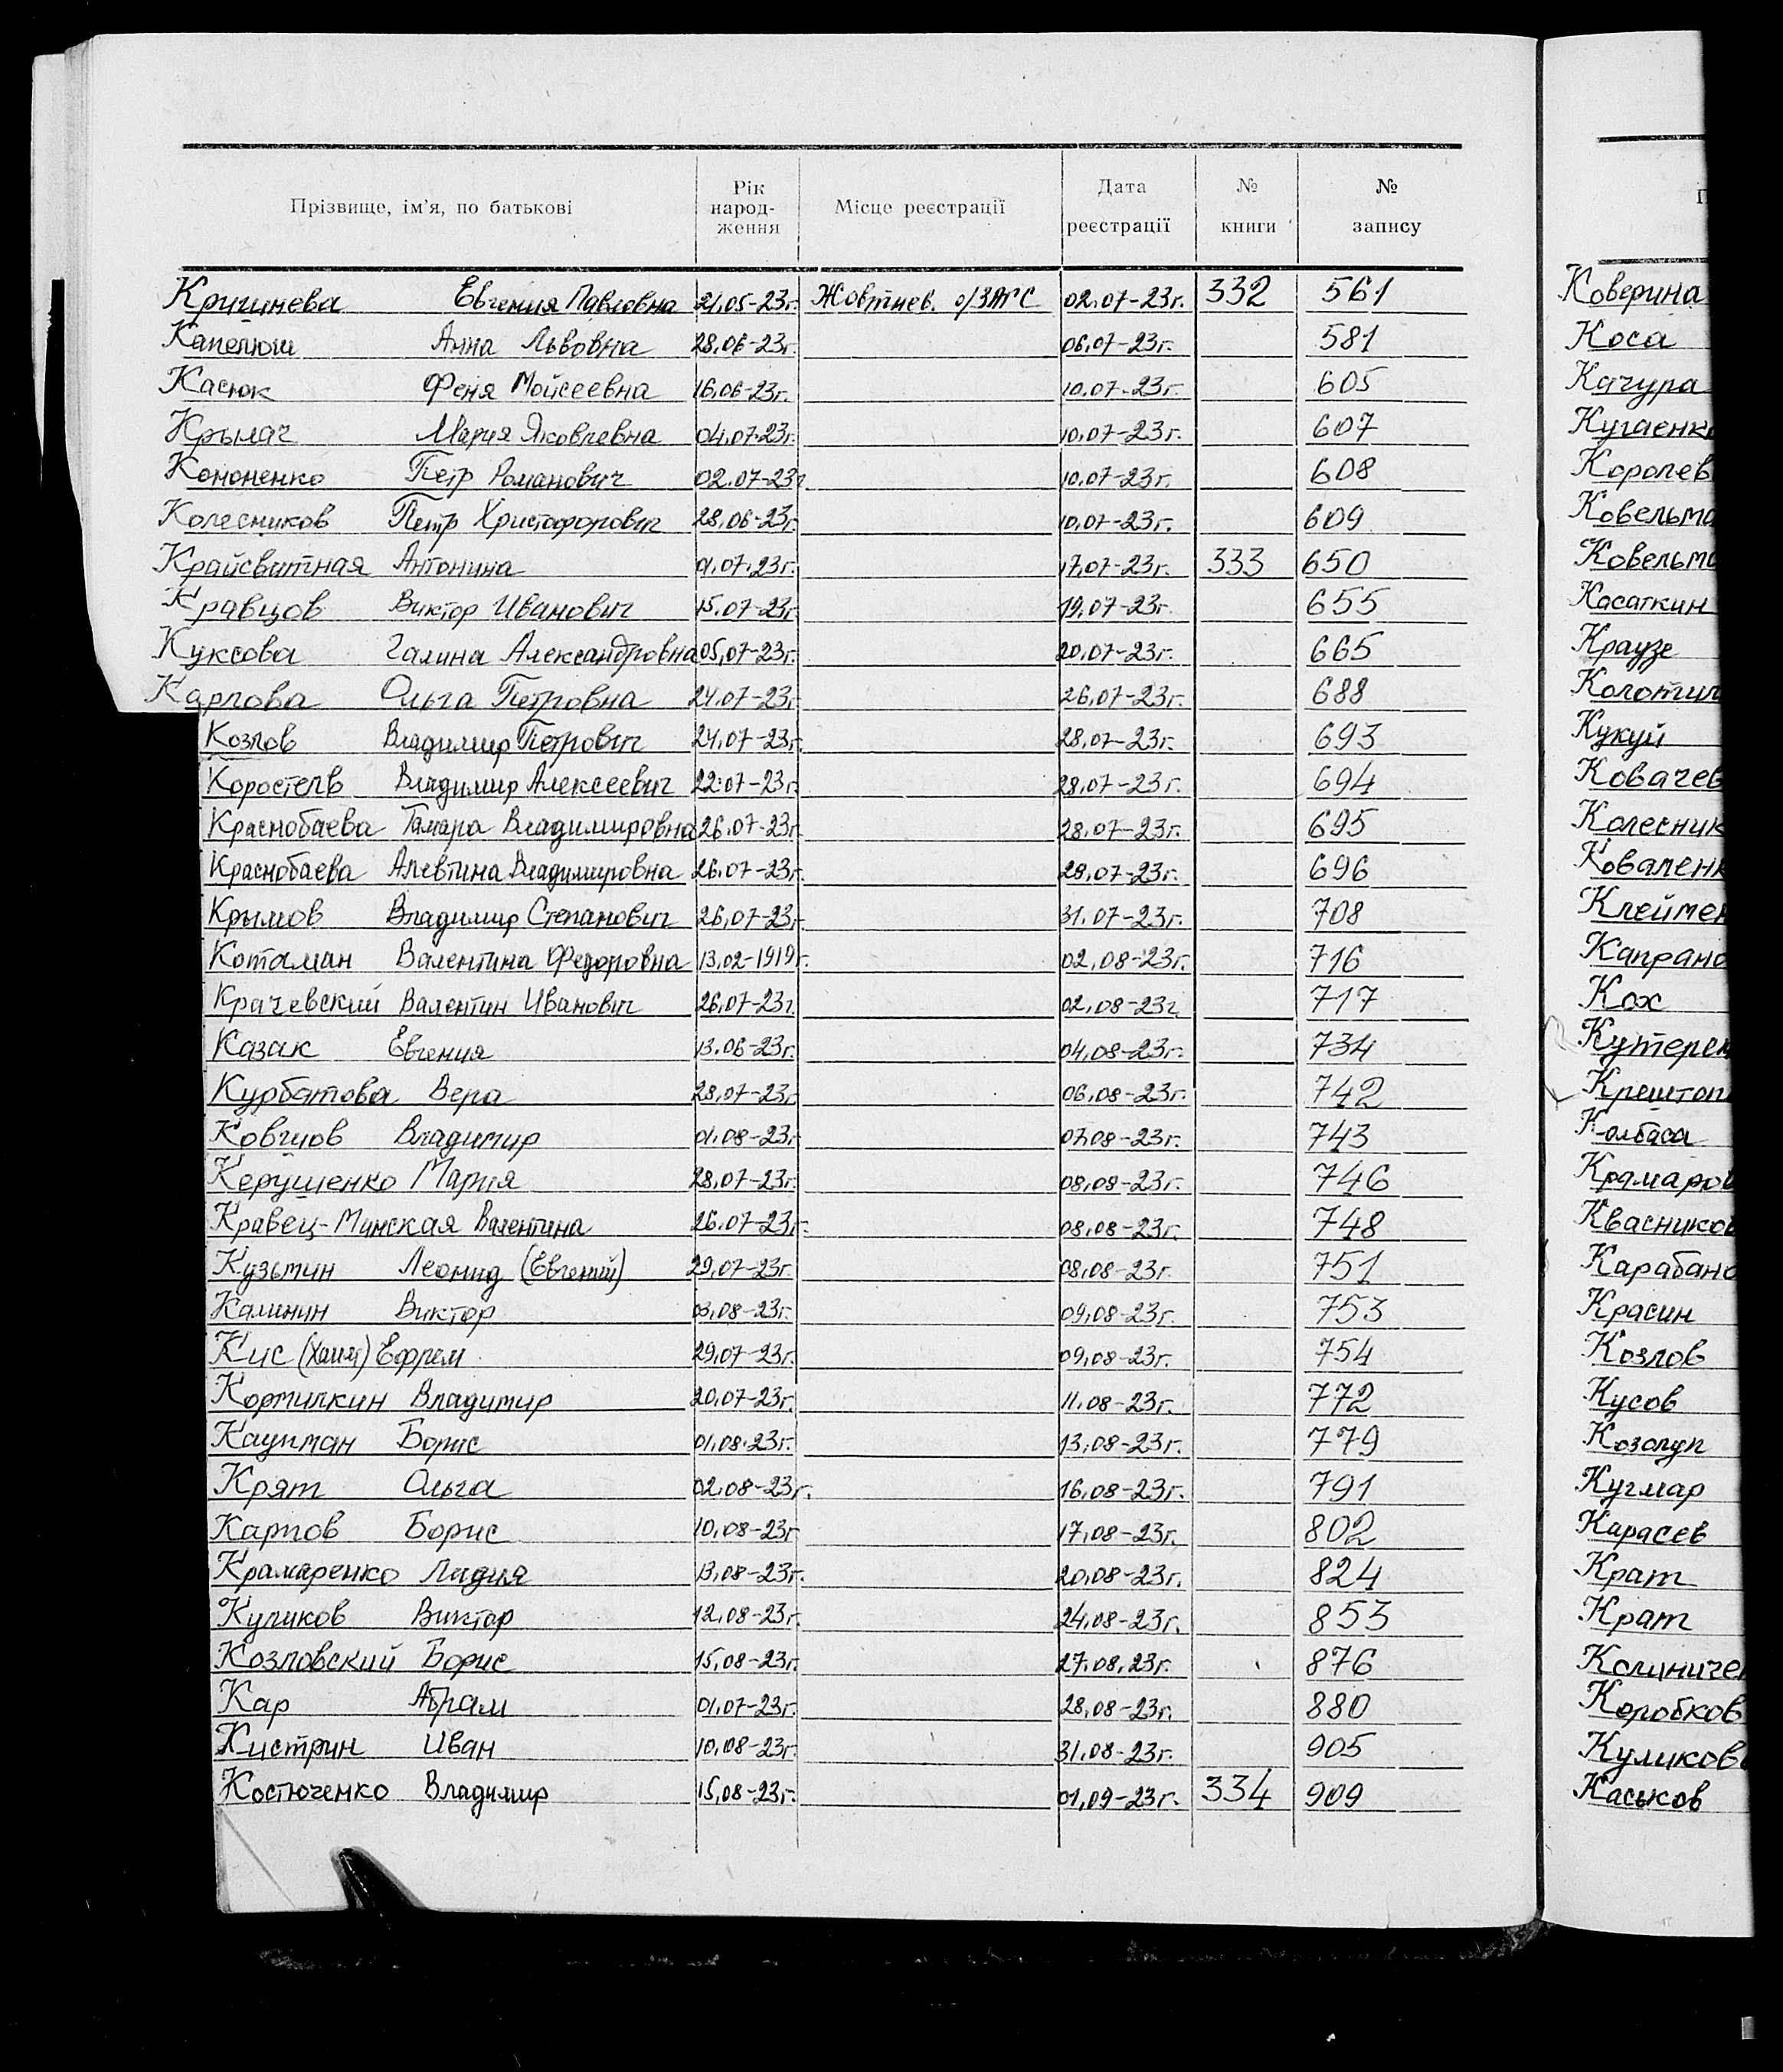 Прізвище, ім'я, по батькові Рік народ- ження Місце реєстрації Дата реєстрації № книги № запису
Евгения Павловна 21.05-23г. Жовтнев. о/ЗАГС 02.07-23г. 332 561
Капелюш Анна Львовна 28.06-23г. 06.07-23г. 581
Касюк Феня Мойсеевна 16.06-23г. 10.07-23г. 605
Крылач Мария Яковлевна 04.07.23г. 10.07-23г. 607
Кононенко Петр Романович 02.07-23г 10.07-23г. 608
Колесников Петр Христофорович 28.06-23г. 10.07-23г. 609
Крайсвитная Антонина 01.07.23г. 17.07-23г. 333 650
Кравцов Виктор Иванович 15.07-23г. 19.07-23г. 655
Куксова Галина Александровна 05.07-23г. 20.07-23г. 665
Карпова Ольга Петровна 24.07-23г. 26.07-23г. 688
Козлов Владимир Петрович 24.07-23г. 28.07-23г. 693
Коростелв Владимир Алексеевич 22.07-23г. 28.07-23г. 694
Краснобаева Тамара Владимировна 26.07-23г. 28.07-23г. 695
Краснобаева Алевтина Владимировна 26.07-23г. 28.07-23г. 696
Крымов Владимир Степанович 26.07-23г. 31.07-23г. 708
Котаман Валентина Федоровна 13.02-1919г. 02.08-23г. 716
Крачевский Валентин Иванович 26.07-23г. 02.08-23г. 717
Казак Евгения 13.06-23г. 04.08-23г. 734
Курбатова Вера 28.07-23г. 06.08-23г. 742
Владимир 01.08-23г. 07.08-23г. 743
Керущенко Мария 28.07-23г. 08.08-23г. 746
Кравец-Минская Валентина 26.07-23г. 08.08-23г. 748
Кузьмин Леонид (Евгений) 29.07-23г. 08.08-23г. 751
Калинин Виктор 03.08-23г. 09.08-23г. 753
Кис (Хаим) Ефрем 29.07-23г. 09.08-23г. 754
Кормилкин Владимир 20.07-23г. 11.08-23г. 772
Каупман Борис 01.08.23г. 13.08-23г. 779
Крят Ольга 02.08-23г. 16.08-23г. 791
Карпов Борис 10.08-23г. 17.08-23г. 802
Крамаренко Лидия 13.08-23г. 20.08-23г. 824
Куликов Виктор 12.08-23г. 24.08-23г. 853
Козловский Борис 15.08-23г. 27.08.23г. 876
Кар Абрам 01.07-23г. 28.08-23г. 880
Кистрин Иван 10.08-23г. 31.08-23г. 905
Костюченко Владимир 15.08-23г. 01.09-23г. 334 909
Коверина
Коса
Качура
Кугаенко
Королев
Ковельма
Ковельма
Касаткин
Краузе
Колотил
Кукуй
Ковачев
Колесник
Коваленк
Клеймен
Капрано
Кох
Кутереп
Крештоп
Колбаса
Крамаров
Квасников
Карабано
Красин
Козлов
Кусов
Козолуп
Кугмар
Карасев
Крат
Крат
Калиничен
Коробков
Куликов
Каськов